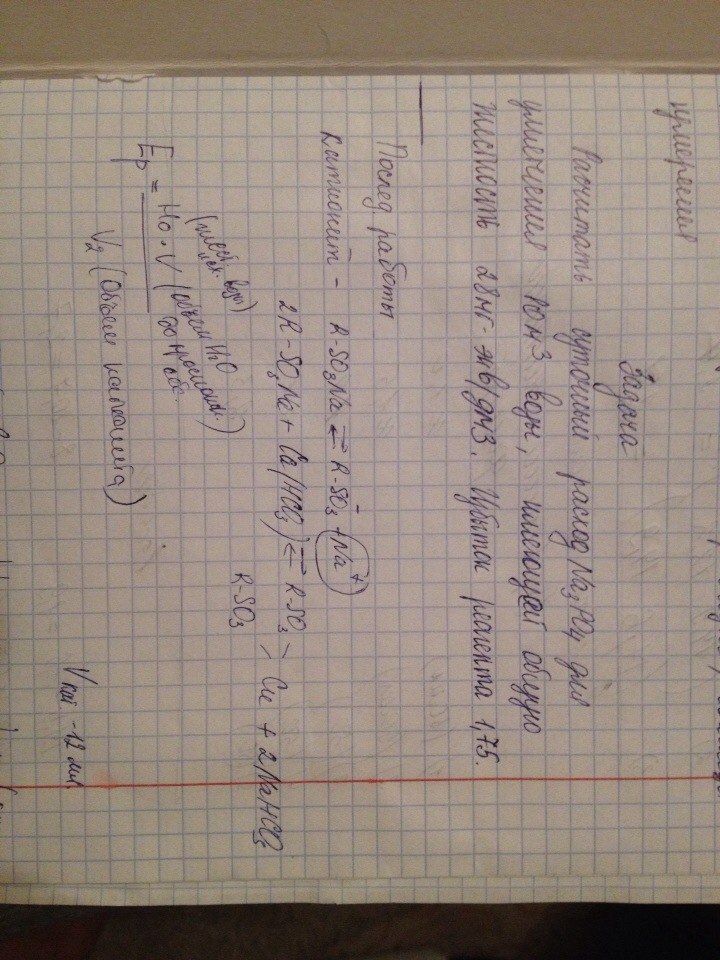 Задача
Расчитать суточный расход Na3PO4 для
умягчения 10м3 воды, имеющей общую
жесткость 28мг-экв/дм3. Избыток реагента 1,75.
Послед работы
катионит - R-SO3Na ⇌ R-SO3⁻ + Na⁺
2R-SO3Na + Ca(HCO3) ⇌ R-SO3 > Ca + 2NaHCO3
R-SO3
Ep = Ho · V (объем H2O
V2 (Объем катионита)
Vкат -12 мл.